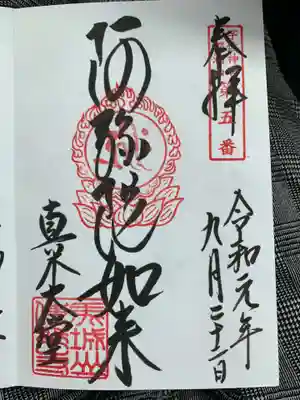 奉拝
五番
令和元年
九月二十二日
阿弥陀如来
真木大堂